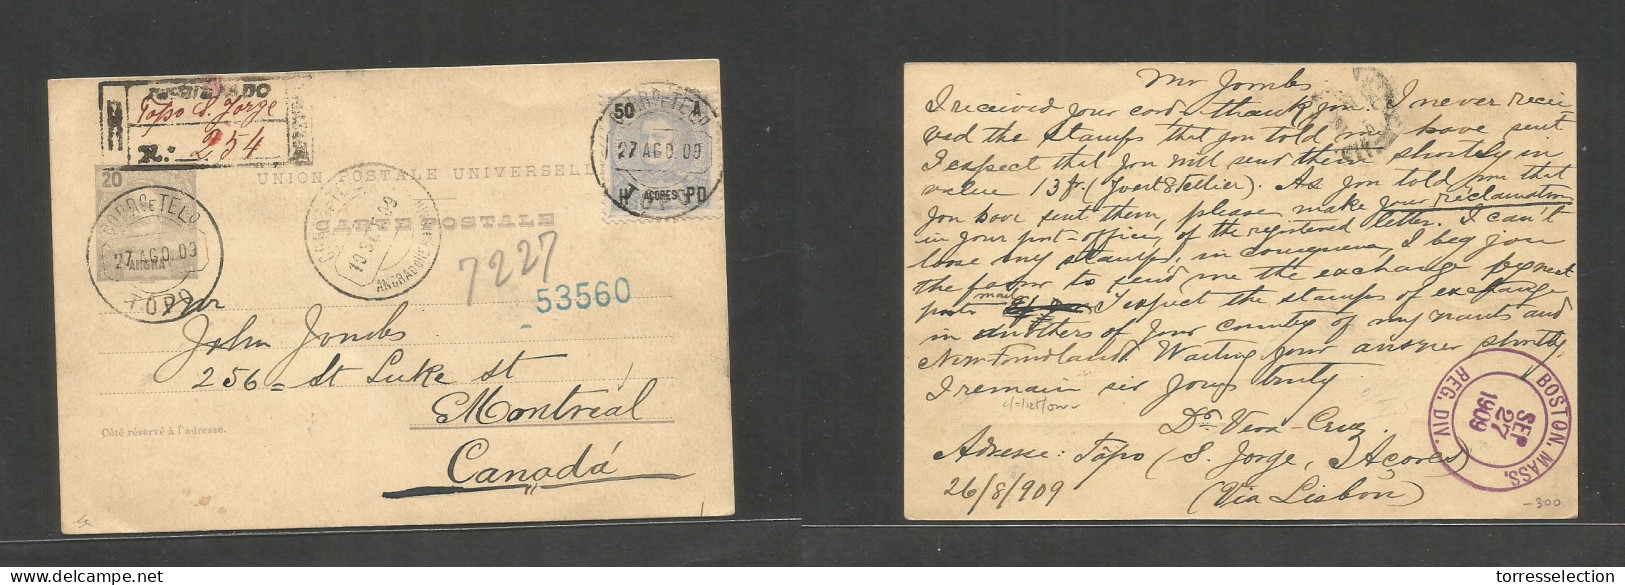 REGISTADO
Topo S. Jorge
N.: 254
20
UNION POSTALE UNIVERSELLE
CARTE POSTALE
50
CORRO E TELO
27 AGO. 09
AÇORES
H
PD
TOPO
CORRO E TELO
27 AGO. 09
ANGRA
TOPO
10 SET 09
7227
53560
Mr
John Jombs
256= St Luke st
Montreal
Canadá
Côté réservé à l'adresse.
Mr Jombs
I received your card, thank you. I never recei
ved the stamps that you told me have sent
I expect that you will send them shortely in
value 13 fr. (Yvert & Tellier). As you told me that
you have sent them, please make your reclamation
in your post-office, of the registered letter. I can't
lose my stamps, in consequence, I beg you
the favor to send me the exchange by next
post mail I expect the stamps of exchange
in others of your country of my wants and
New-Foundland. Waiting your answer shortly,
I remain sir yours truly
Dr. Vera-Cruz.
Adresse: Topo (S. Jorge, Açores)
26/8/909 (Via Lisbon)
BOSTON, MASS.
SEP
27
1909
REG. DIV.
-300
torresselection